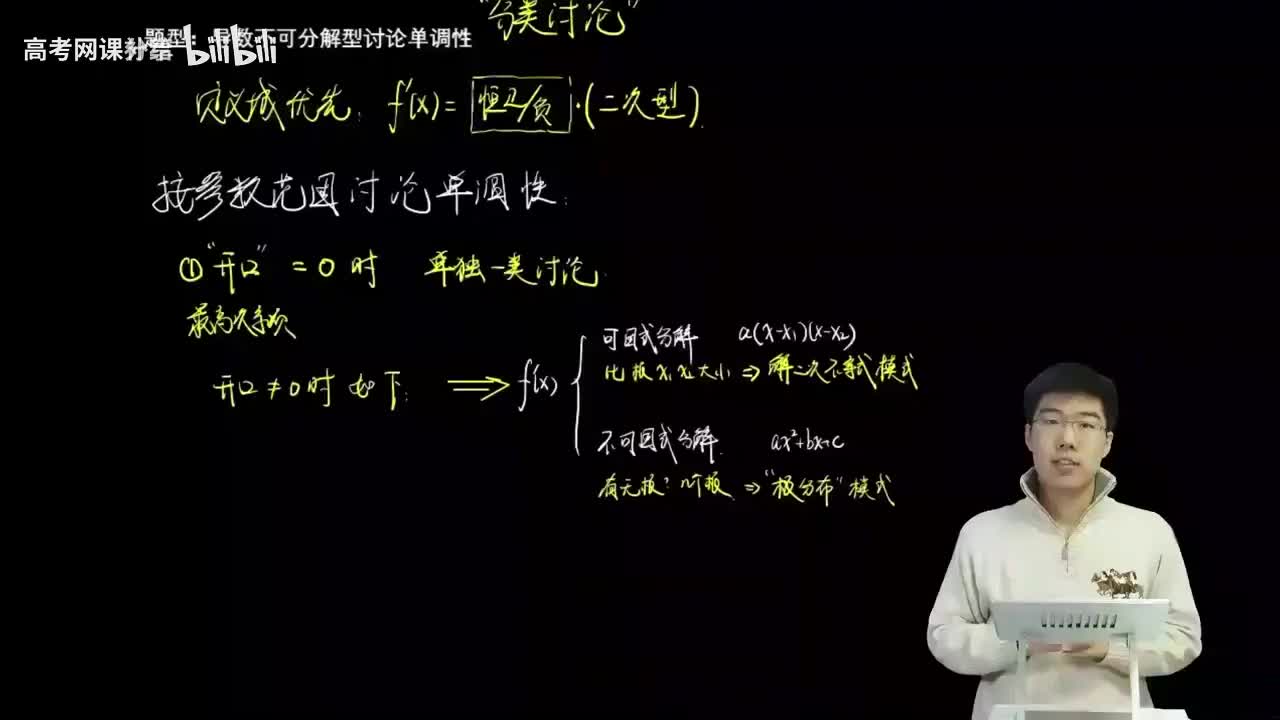 "分类讨论"
题型：导数不可分解型讨论单调性
高考网课补给 bilibili
定义域优先: f'(x)= 恒正/负 ·(二次型).
按参数范围讨论单调性:
①"开口" = 0 时 单独一类讨论.
最高次系数
可因式分解 a(x-x₁)(x-x₂)
比根 x₁ x₂ 大小 ⇒ 解二次不等式模式
开口 ≠ 0 时 如下: ⟹ f'(x)
不可因式分解. ax²+bx+c
有无根? 几个根. ⇒ "根分布" 模式